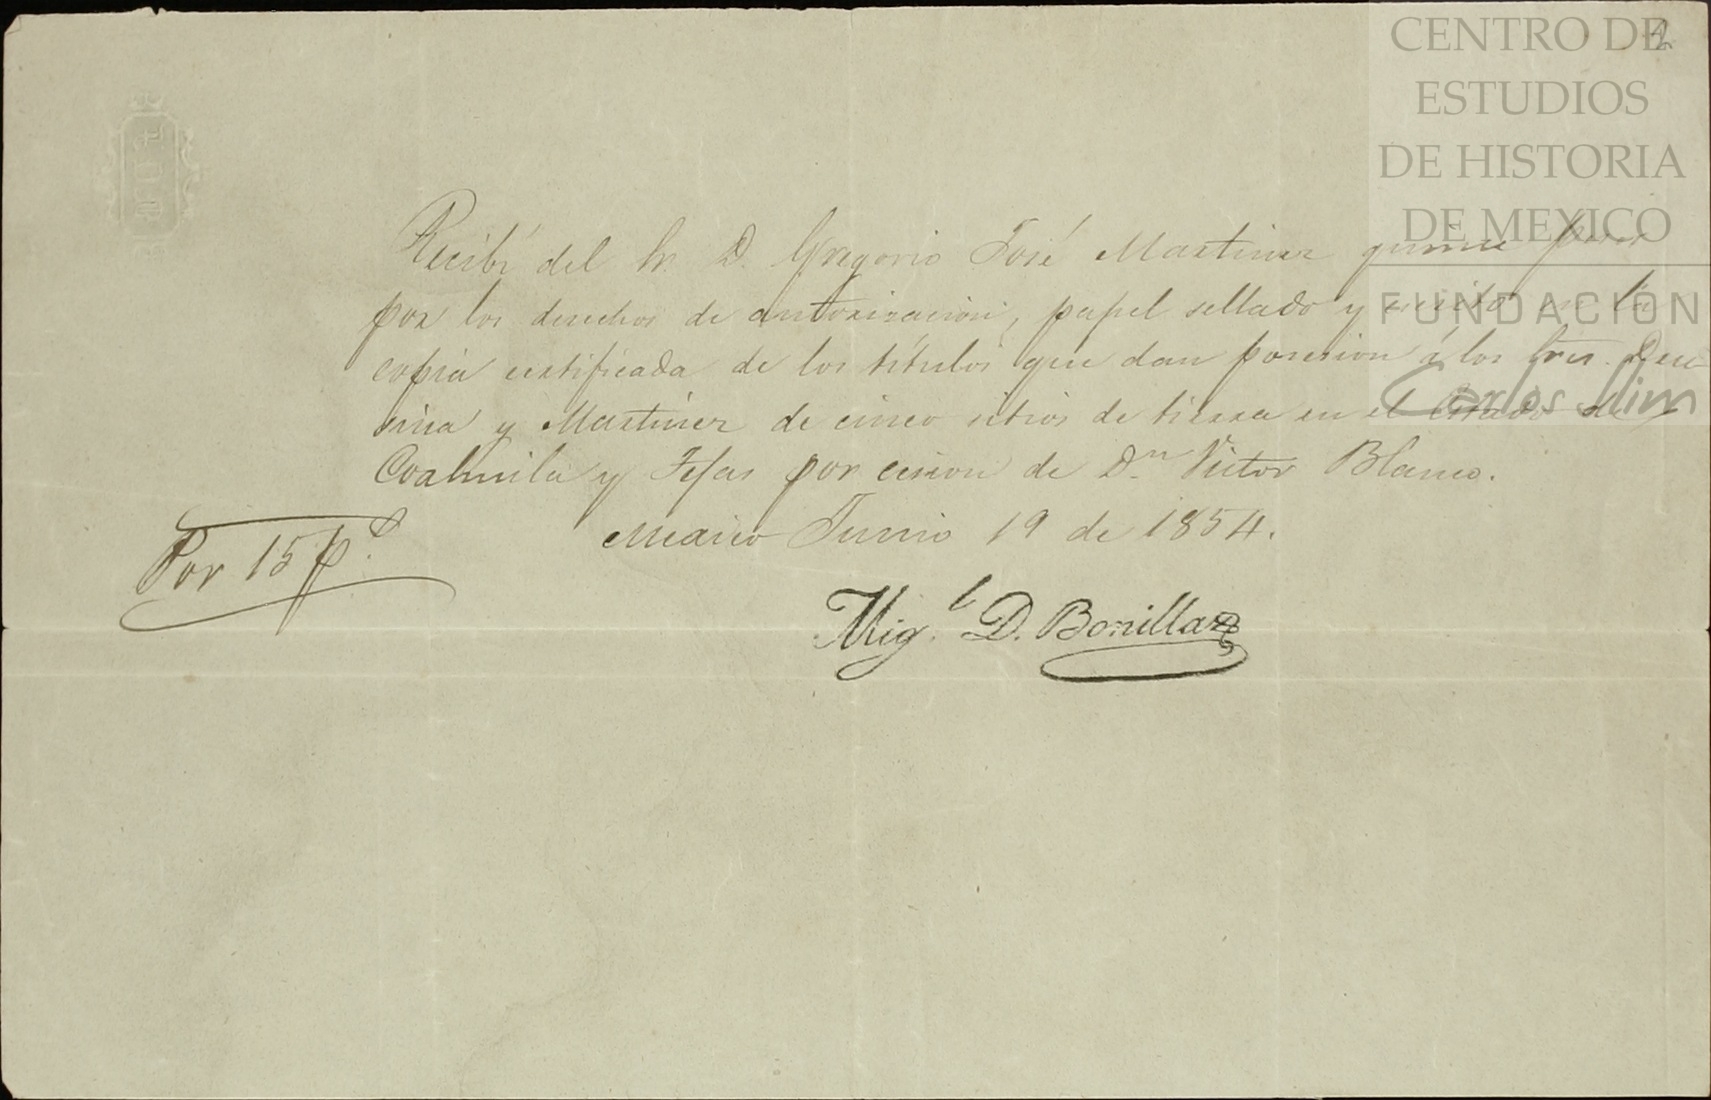 CENTRO DE
ESTUDIOS
DE HISTORIA
DE MEXICO
FUNDACIÓN
Carlos Slim
2
Recibí del Sr. D. Gregorio José Martinez quince pesos
por los derechos de autorizacion, papel sellado y escrito en la
copia certificada de los títulos que dan posesion á los Sres.
y Martinez de cinco sitios de tierra en el Estado de
Coahuila y Tejas por cesion de Dn. Victor Blanco.
Mexico Junio 19 de 1854.
Por 15 ps.
Migl. D. Bonilla